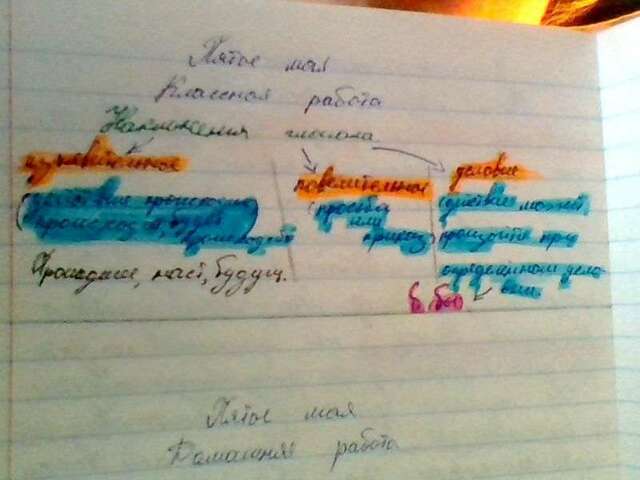 Пятое мая
Классная работа
Наклонения глагола
изъявительное
повелительное
условие
(действие происходило
происходит, будет
происходить
(просьба
или
приказ)
(действие может
произойти при
определенном усло-
вии
Прошедшее, наст, будущ.
б, бы
Пятое мая
Домашняя работа